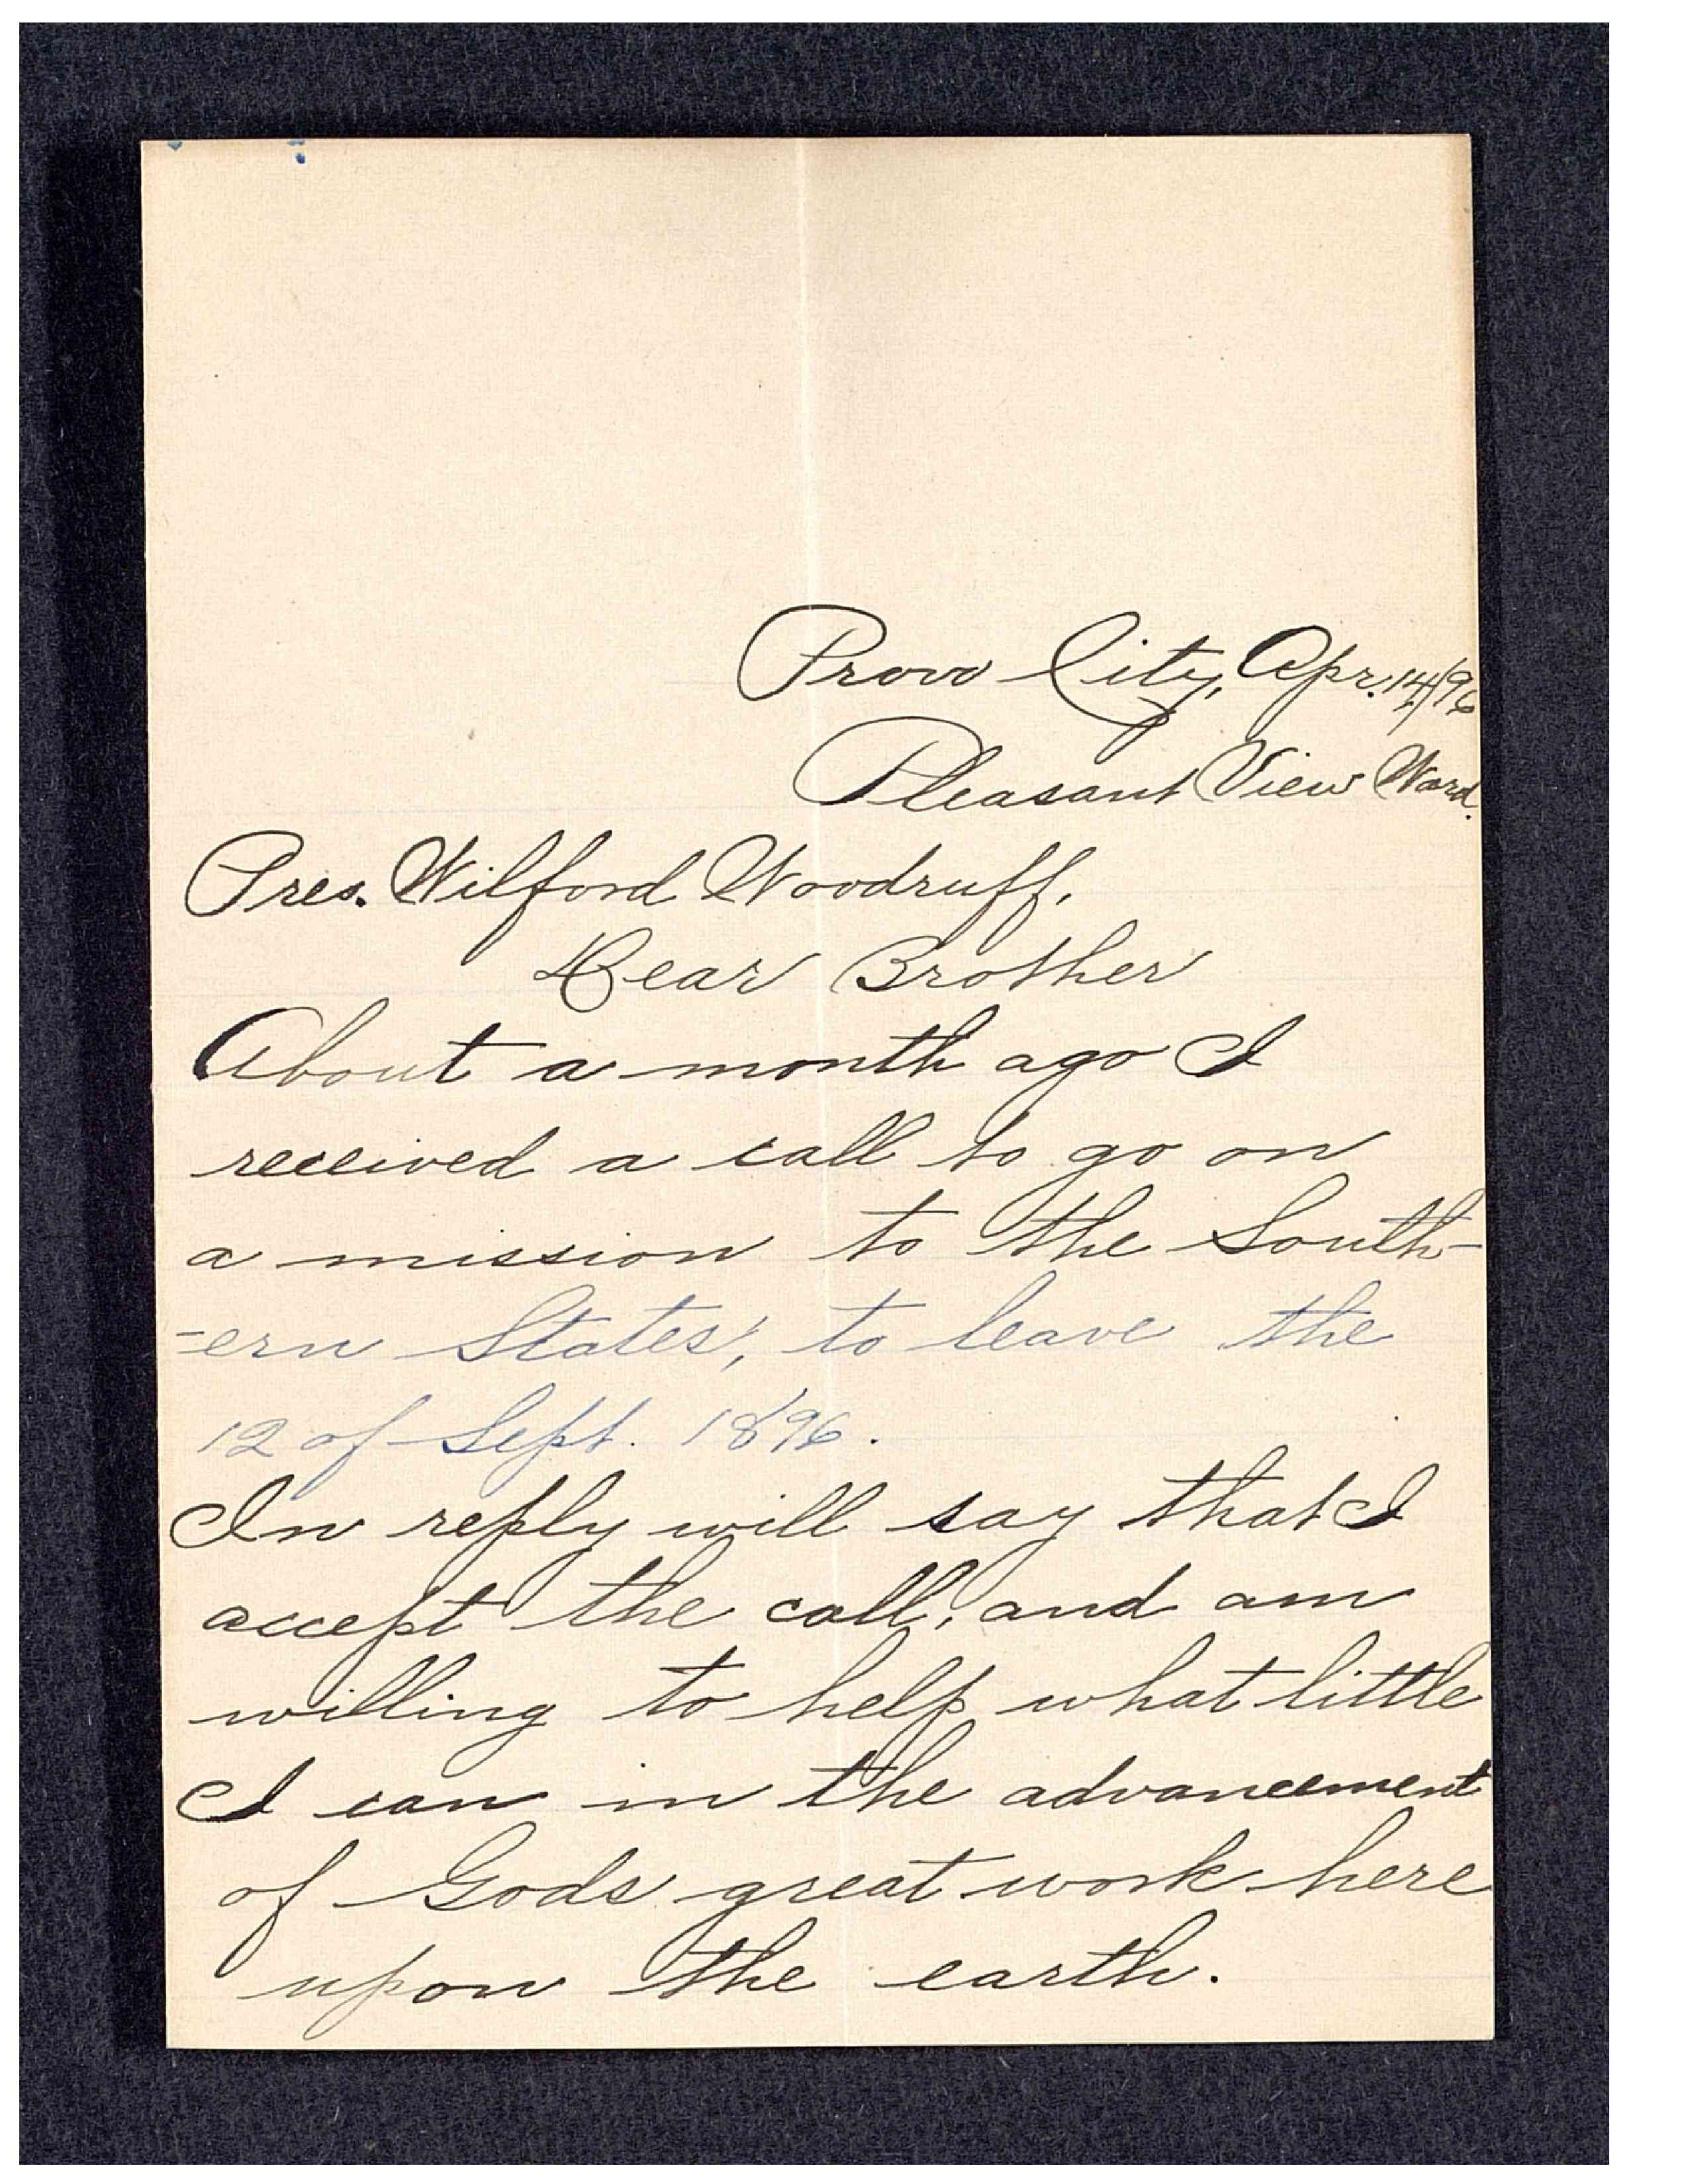 Provo City, Apr. 14/96
Pleasant View Ward.
Pres. Wilford Woodruff,
Dear Brother
About a month ago I
received a call to go on
a mission to the South-
-ern States, to leave the
12 of Sept. 1896.
In reply will say that I
accept the call, and am
willing to help what little
I can in the advancement
of Gods great work here
upon the earth.